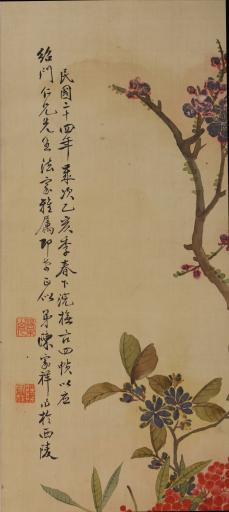 民國二十四年歲次乙亥季春下浣橅古四幀以應
紹門仁兄先生法家雅屬即希正似弟陳家祥作於西陵